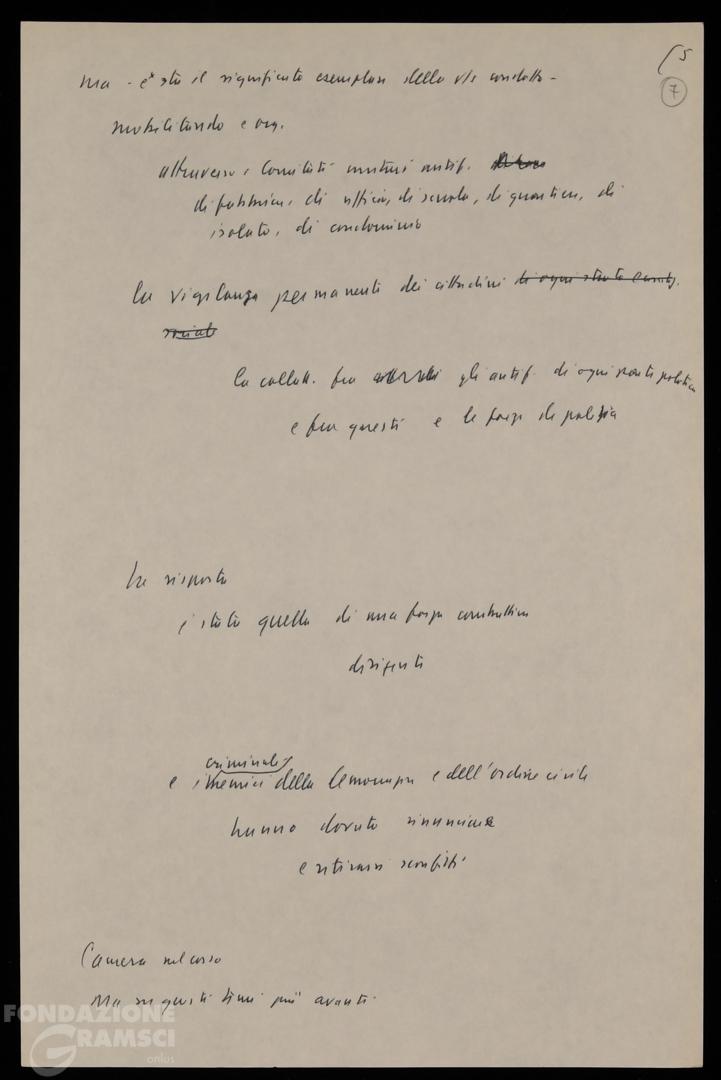 5
7
ma - è stato il significato esemplare della vs condotta -
mobilitando e org.
attraverso i Comitati unitari antif.
di fabbrica, di ufficio, di scuola, di quartiere, di
isolato, di condominio
la vigilanza permanente dei cittadini di ogni strato e
sociale
la collab. fra gli antif. di ogni parte politica
e fra questi e le forze di polizia
La risposta
è stata quella di una forza combattiva
dirigente
criminali
e i nemici della democrazia e dell'ordine civile
hanno dovuto rinunciare
e ritirarsi sconfitti
Camera nel corso
Ma su questi temi più avanti
FONDAZIONE
GRAMSCI
onlus